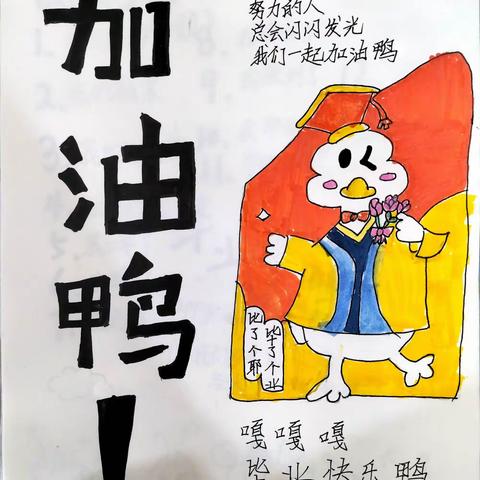 加油鸭！
努力的人
总会闪闪发光
我们一起加油鸭
毕了个业
比了个耶
嘎嘎嘎
毕业快乐鸭